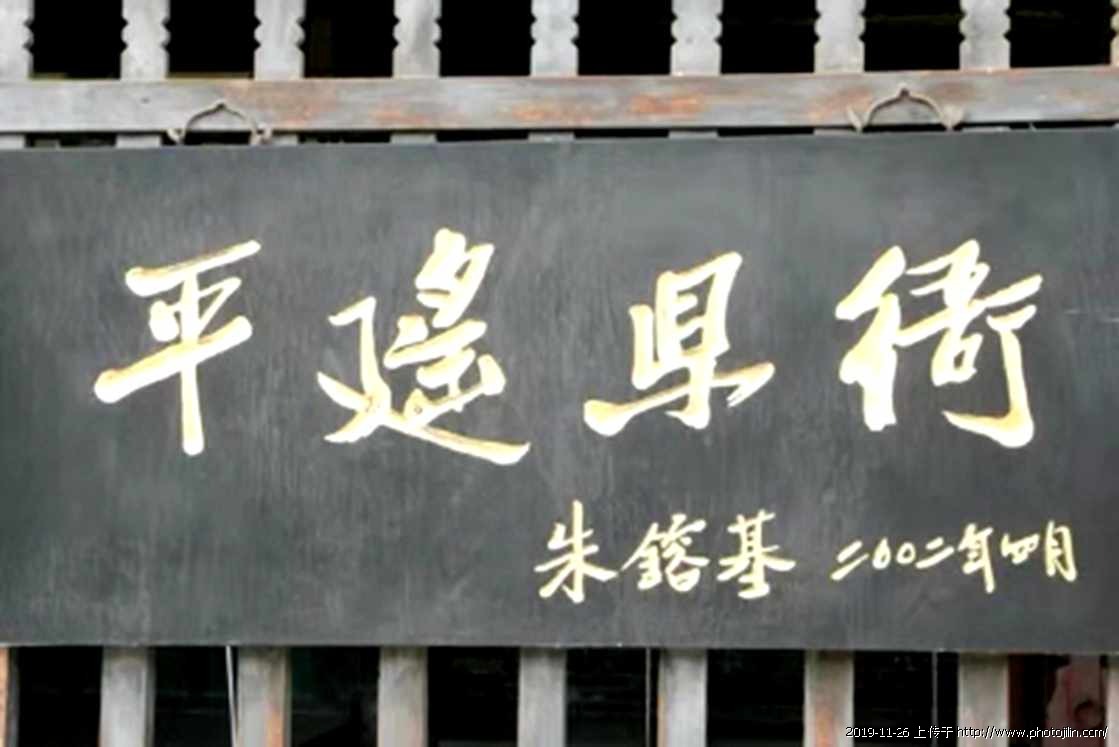 平遥县衙
朱镕基 二00二年四月
2019-11-26 上传于 http://www.photojlin.com/